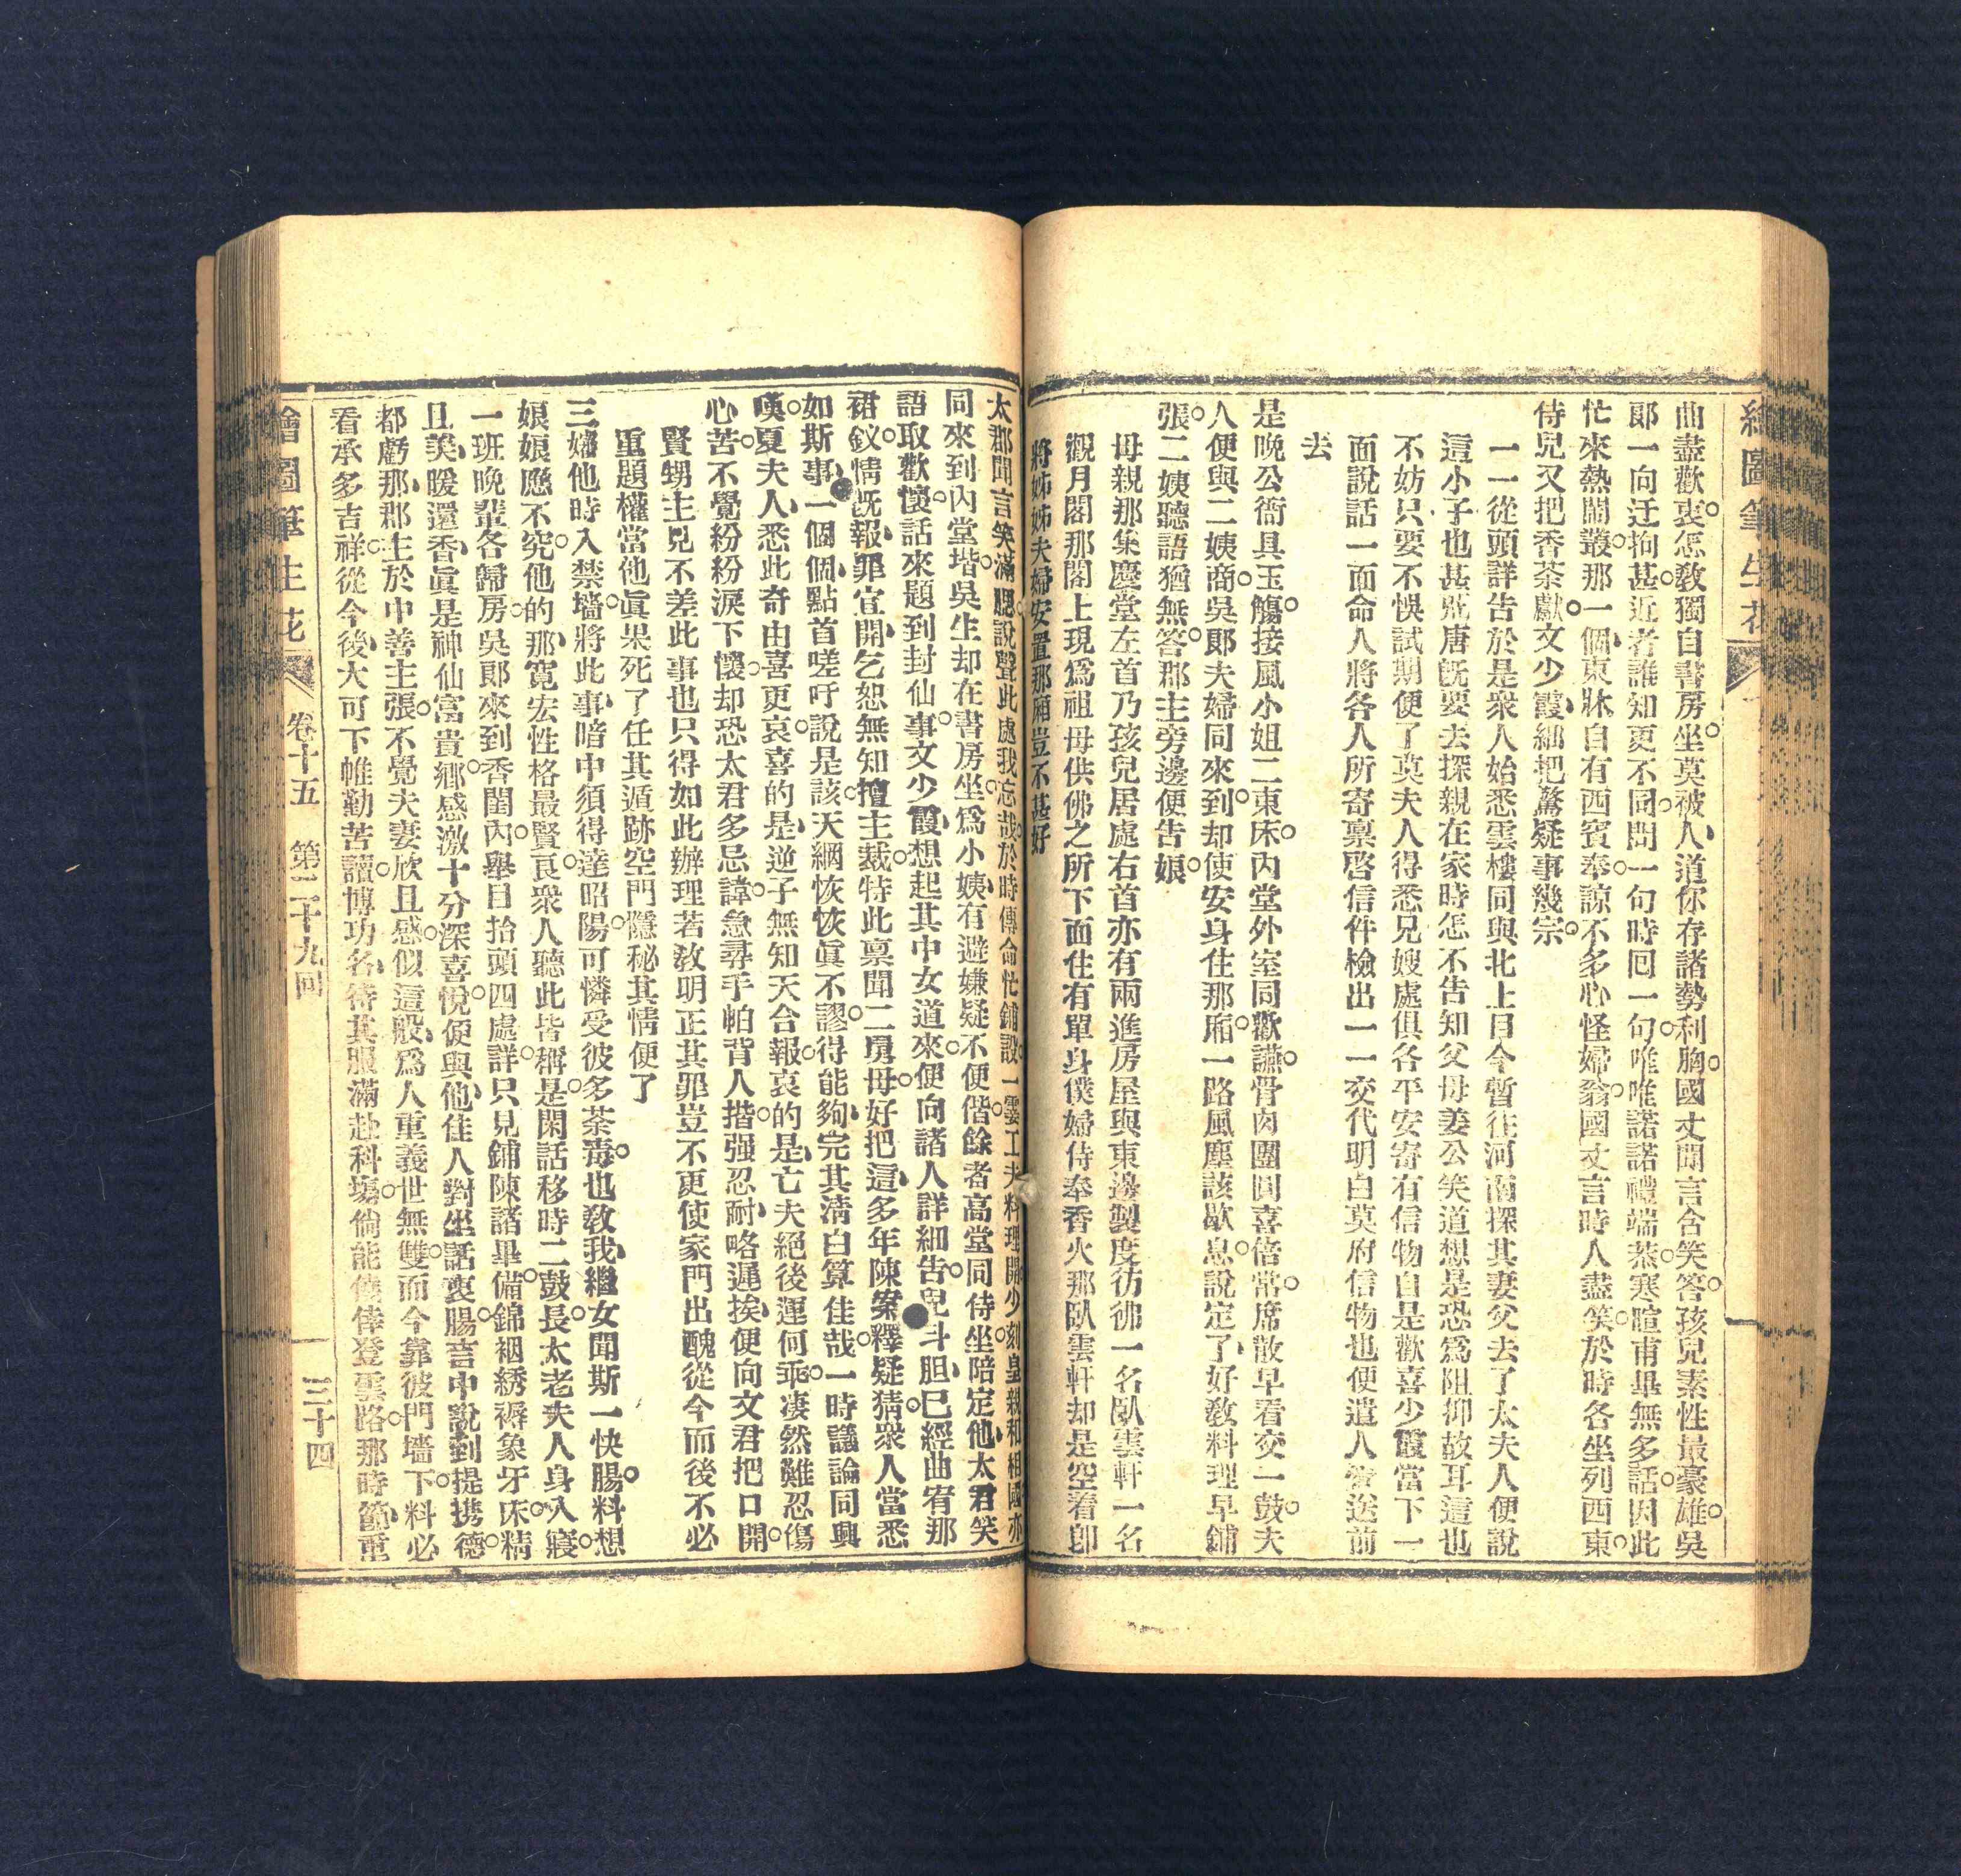 繪圖筆生花
曲盡歡衷。怎教獨自書房坐。莫被人道你存諸勢利胸。國丈聞言含笑答。孩兒素性最豪雄。吳
郞一向迂拘甚。近者誰知更不同。問一句時回一句。唯唯諾諾禮端恭。寒暄甫畢無多話。因此
忙來熱鬧叢。那一個東牀自有西賓奉。諒不多心怪婦翁。國丈言時人盡笑。於時各坐列西東。
侍兒又把香茶獻。文少霞細把驚疑事幾宗。
一一從頭詳告於是衆人始悉雲樓同與北上目今暫往河南探其妻父去了太夫人便說
這小子也甚荒唐旣要去探親在家時怎不告知父母姜公笑道想是恐爲阻抑故耳這也
不妨只要不悞試期便了莫夫人得悉兄嫂處俱各平安寄有信物自是歡喜少霞當下一
面說話一面命人將各人所寄禀啓信件檢出一一交代明白莫府信物也便遣人賫送前
去
是晚公衙具玉觴。接風小姐二東床。內堂外室同歡讌。骨肉團圓喜倍常。席散早看交一鼓。夫
人便與二姨商。吳郞夫婦同來到。却使安身住那廂。一路風塵該歇息。說定了好敎料理早鋪
張。二姨聽語猶無答。郡主旁邊便告娘。
母親那集慶堂左首乃孩兒居處右首亦有兩進房屋與東邊製度彷彿一名臥雲軒一名
觀月閣那閣上現爲祖母供佛之所下面住有單身僕婦侍奉香火那臥雲軒却是空着卽
將姊姊夫婦安置那廂豈不甚好
太郡聞言笑滿腮。說聲此處我忘哉。於時傳命忙鋪設。一霎工夫料理開。少刻皇親和相國。亦
同來到內堂堦。吳生却在書房坐。爲小姨有避嫌疑不便偕。餘者高堂同侍坐。陪定他太君笑
語取歡懷。話來題到封仙事。文少霞想起其中女道來。便向諸人詳細告。兒斗胆已經曲宥那
裙釵。情旣報罪宜開。乞恕無知擅主裁。特此禀聞二舅母。好把這多年陳案釋疑猜。衆人當悉
如斯事。一個個點首嗟吁說是該。天網恢恢眞不謬。得能夠完其淸白算佳哉。一時議論同興
嘆。夏夫人悉此奇由喜更哀。喜的是逆子無知天合報。哀的是亡夫絕後運何乖。凄然難忍傷
心苦。不覺紛紛淚下懷。却恐太君多忌諱。急尋手帕背人揩。强忍耐略遲挨。便向文君把口開。
賢甥主見不差此事也只得如此辦理若敎明正其罪豈不更使家門出醜從今而後不必
重題權當他眞果死了任其遁跡空門隱秘其情便了
三嬸他時入禁墻。將此事暗中須得達昭陽。可憐受彼多荼毒。也敎我繼女聞斯一快腸。料想
娘娘應不究。他的那寬宏性格最賢良。衆人聽此皆稱是。閑話移時二鼓長。太老夫人身入寢。
一班晚輩各歸房。吳郞來到香閨內。舉目抬頭四處詳。只見鋪陳諸畢備。錦裀綉褥象牙床。精
且美暖還香。眞是神仙富貴鄉。感激十分深喜悅。便與他佳人對坐話衷腸。言中說到提携德。
都虧那郡主於中善主張。不覺夫妻欣且感。似這般爲人重義世無雙。而今靠彼門墻下。料必
看承多吉祥。從今後大可下帷勤苦讀。博功名待其服滿赴科塲。倘能僥倖登雲路。那時節重
繪圖筆生花
卷十五 第二十九回
三十四